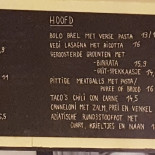 HOOFD
BOLO BREL MET VERSE PASTA 13/1
VEGI LASAGNA MET RICOTTA 16
GEROOSTERDE GROENTEN MET
- BURRATA 15,9
- OSTI-SPEKKAASJE 14
PITTIGE MEATBALLS MET PASTA/
PUREE OF BROOD 16
TACO'S CHILI CON CARNE 14,5
CANNELONI MET ZALM, PREI EN VENKEL
AZIATISCHE RUNDSSTOOFPOT MET
CURRY, KRIELTJES EN NAAN 1